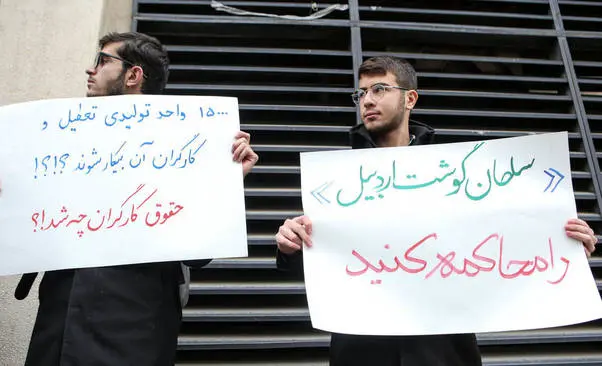 «سلطان گوشت اردبیل»
را محاکمه کنید
... ۱۵ واحد تولیدی تعطیل و
کارگران آن بیکار شوند ؟!؟!
حقوق کارگران چه شد!؟